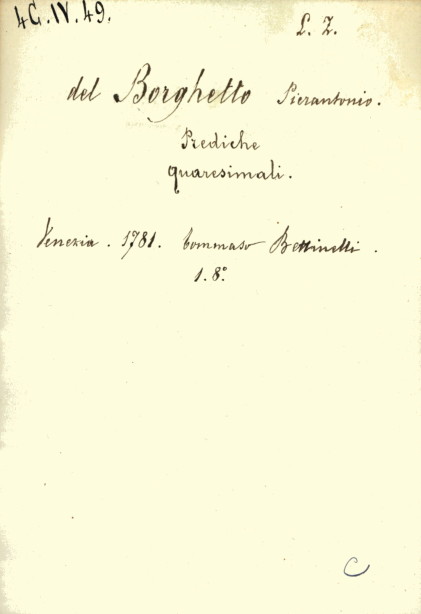 4G.IV.49.
L. Z.
del Borghetto Pierantonio.
Prediche
quaresimali.
Venezia. 1781. Tommaso Bettinelli.
1. 8°
C